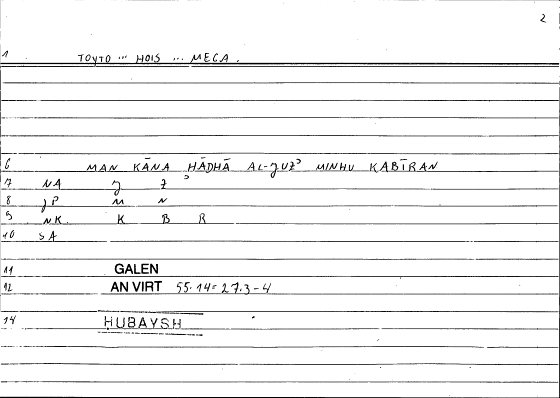 2
1 TOYTO ... HOIS ... MECA.
6 MAN KĀNA HĀDHĀ AL-ǧUZʾ MINHU KABĪRAN
7 NA ǧ Z ʾ
8 JP M N
9 NK. K B R
10 SA
11 GALEN
12 AN VIRT 55.14=27.3-4
14 ḤUBAYSH